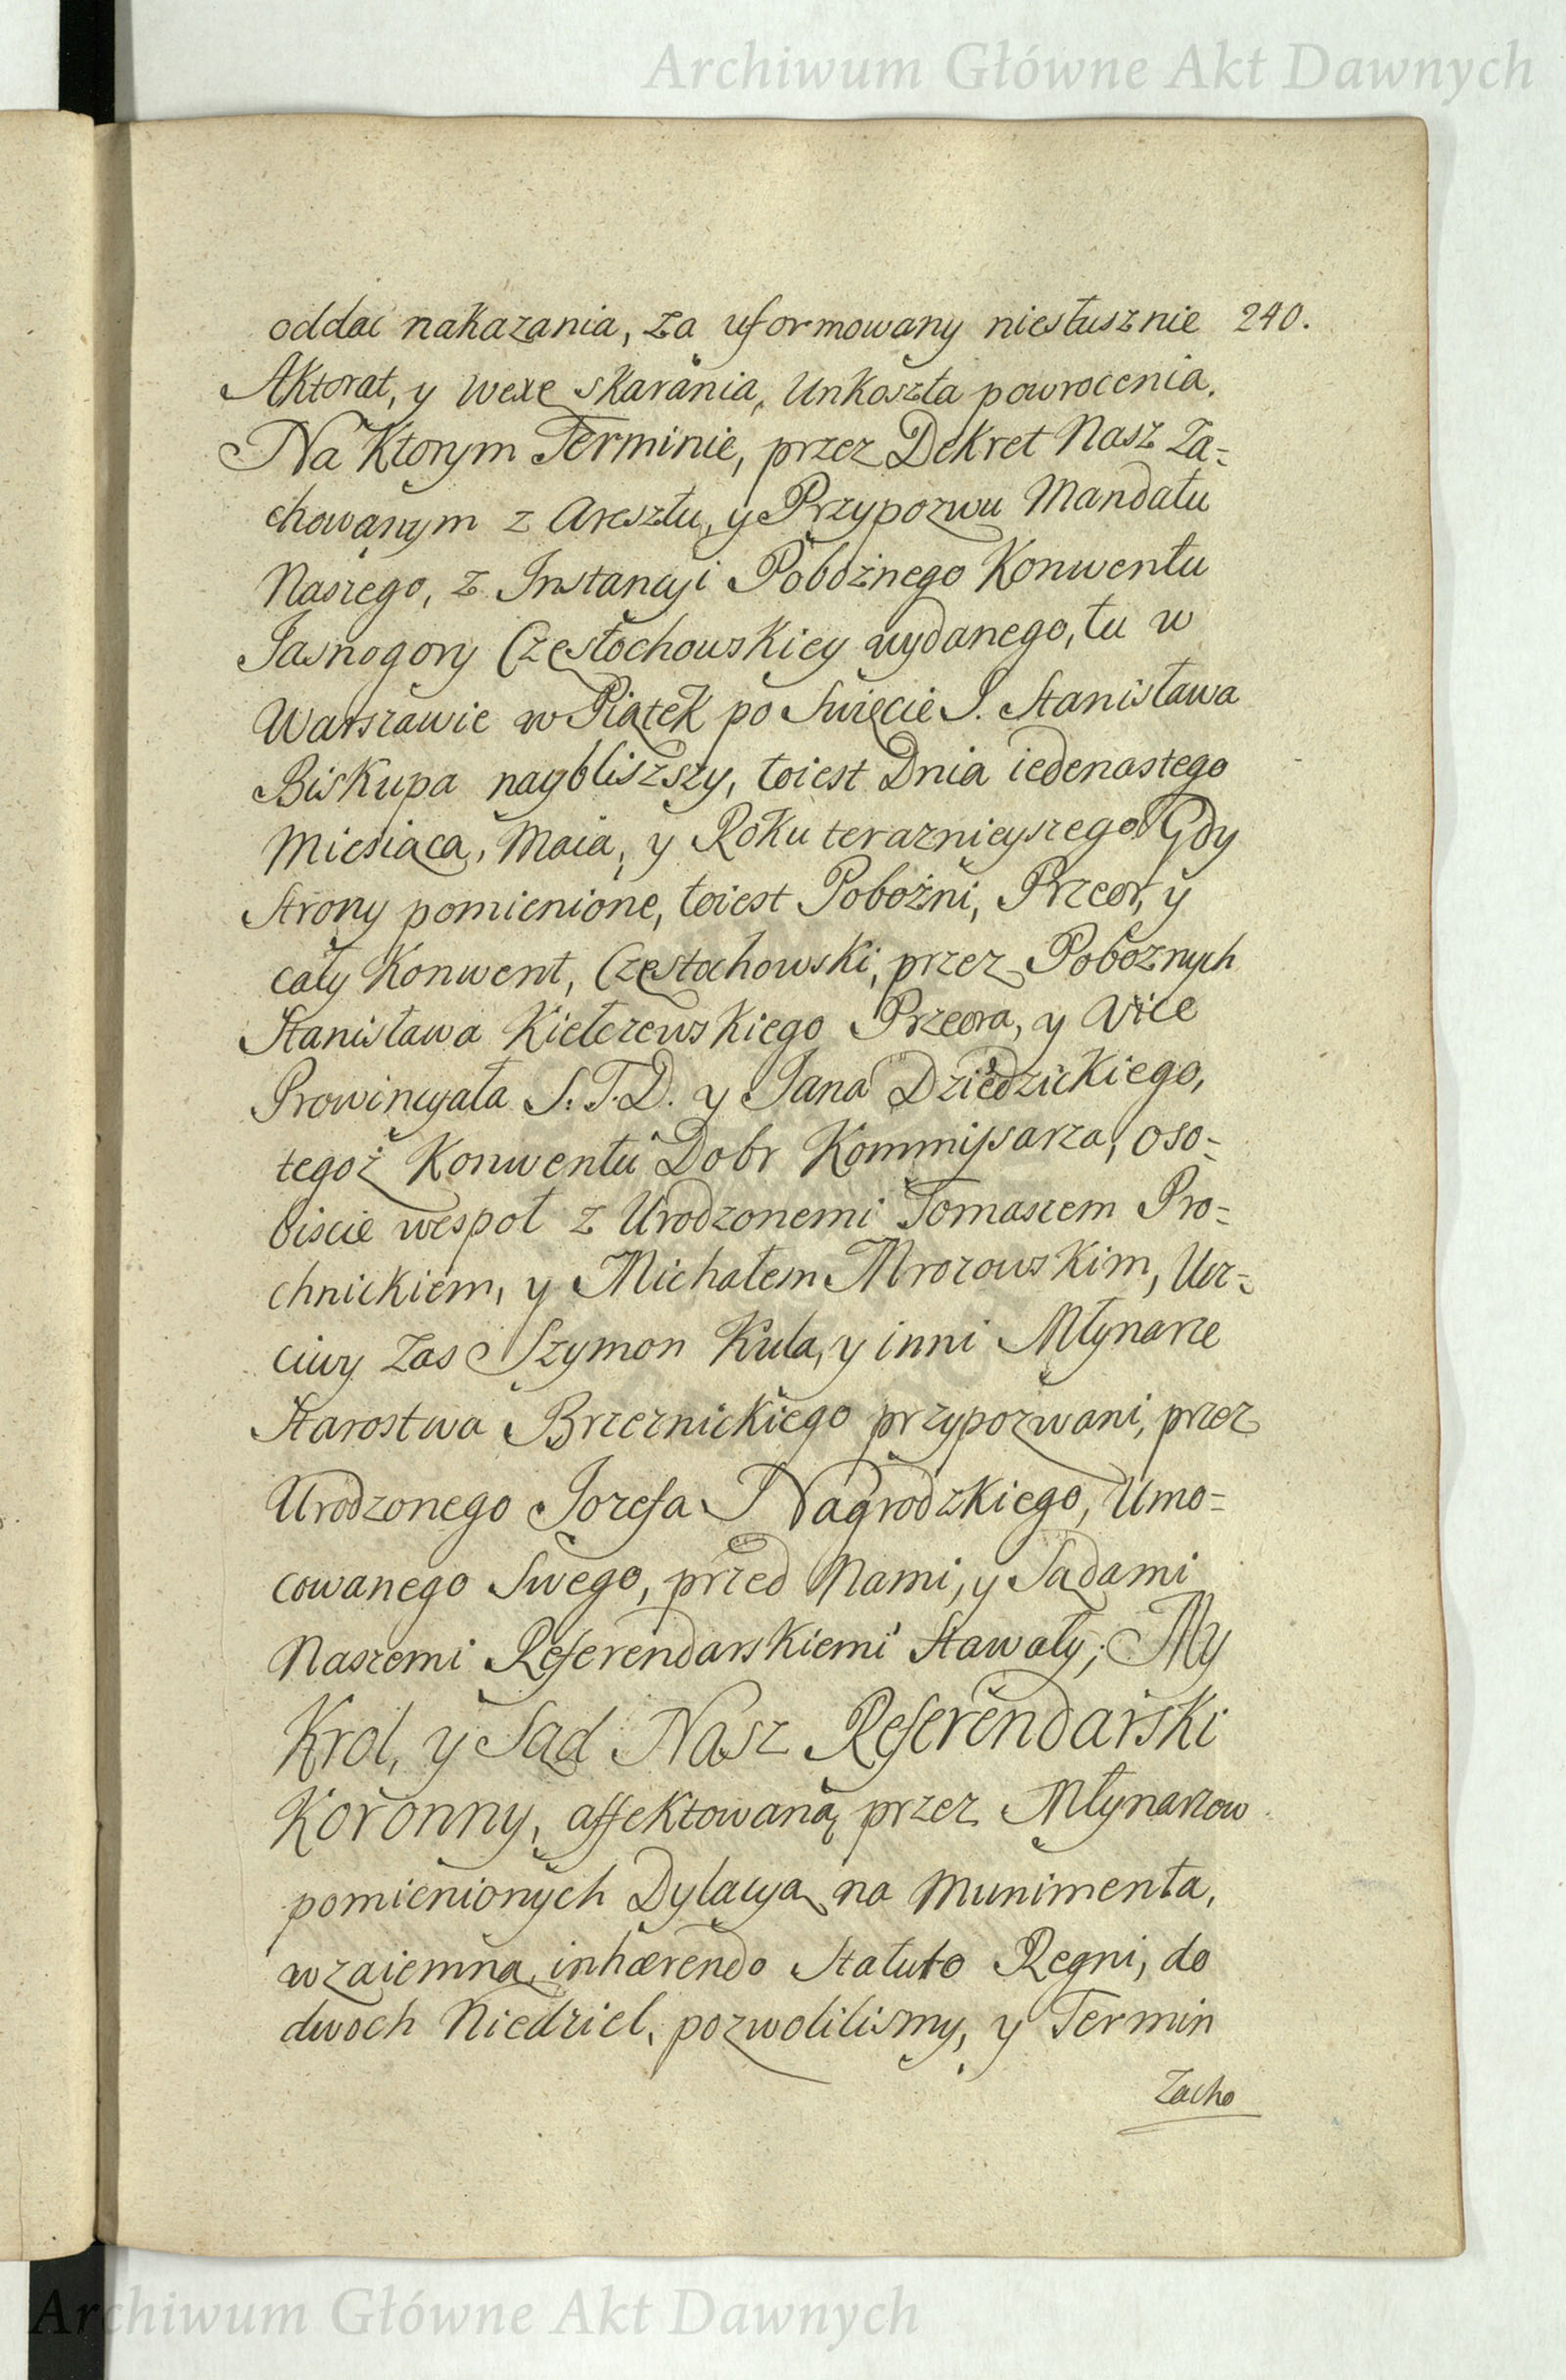 Archiwum Główne Akt Dawnych
oddać nakazania, za uformowany niesłusznie 240.
Aktorat, y wexę skarania, Unkoszta powrocenia.
Na Ktorym Terminie, przez Dekret Nasz Za=
chowanym z Aresztu, y Przypozwu Mandatu
Naszego, z Instancyi Pobożnego Konwentu
Jasnogory Częstochowskiey wydanego, tu w
Warszawie w Piątek po Swięcie S. Stanisława
Biskupa naybliższy, toiest Dnia iedenastego
Miesiąca, Maia, y Roku teraznieyszego Gdy
Strony pomienione, toiest Pobożni, Przeor, y
cały Konwent, Częstochowski, przez Pobożnych
Stanisława Kiełczewskiego Przeora, y Vice
Prowincyała S. T. D. y Jana Dziedzickiego,
tegoż Konwentu Dobr Kommissarza, oso=
biscie wespoł z Urodzonemi Tomaszem Pro=
chnickiem, y Michałem Mrozowskim, Ucz=
ciwy zas Szymon Kula, y inni Młynarze
Starostwa Brzeznickiego przypozwani, przez
Urodzonego Jozefa Nagrodzkiego, Umo=
cowanego Swego, przed Nami, y Sądami
Naszemi Referendarskiemi Stawały; My
Krol, y Sąd Nasz Referendarski
Koronny, affektowaną przez Młynarzow
pomienionych Dylacyą na Munimenta,
wzaiemną, inhærendo Statuto Regni, do
dwoch Niedziel, pozwolilismy, y Termin
Zacho
Archiwum Główne Akt Dawnych